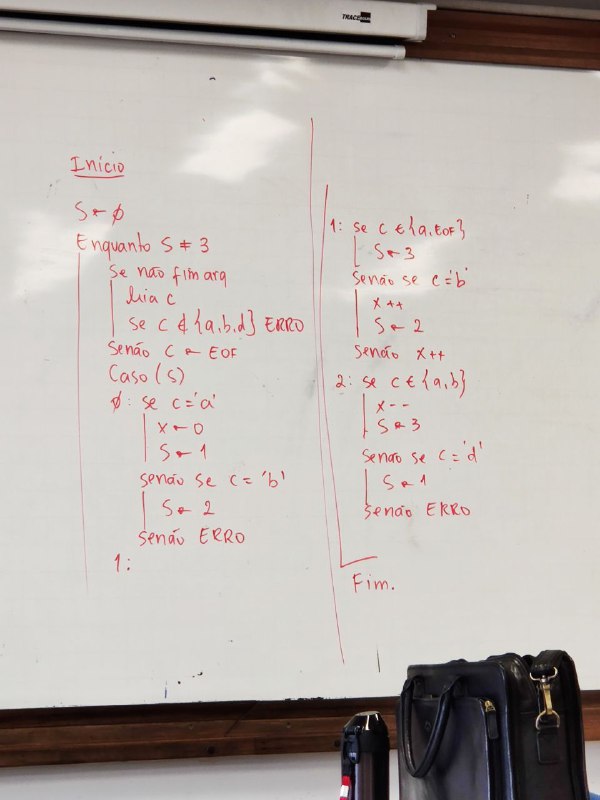 Início
S ← ∅
Enquanto S ≠ 3
Se não fim arq
leia c
se c ∉ {a,b,d} ERRO
senão c ← EOF
Caso (s)
∅: se c='a'
x ← 0
S ← 1
senão se c = 'b'
S ← 2
senão ERRO
1:
1: se c ∈ {a, EOF}
S ← 3
senão se c='b'
x++
S ← 2
senão x++
2: se c ∈ {a,b}
x--
S ← 3
senão se c = 'd'
S ← 1
senão ERRO
Fim.